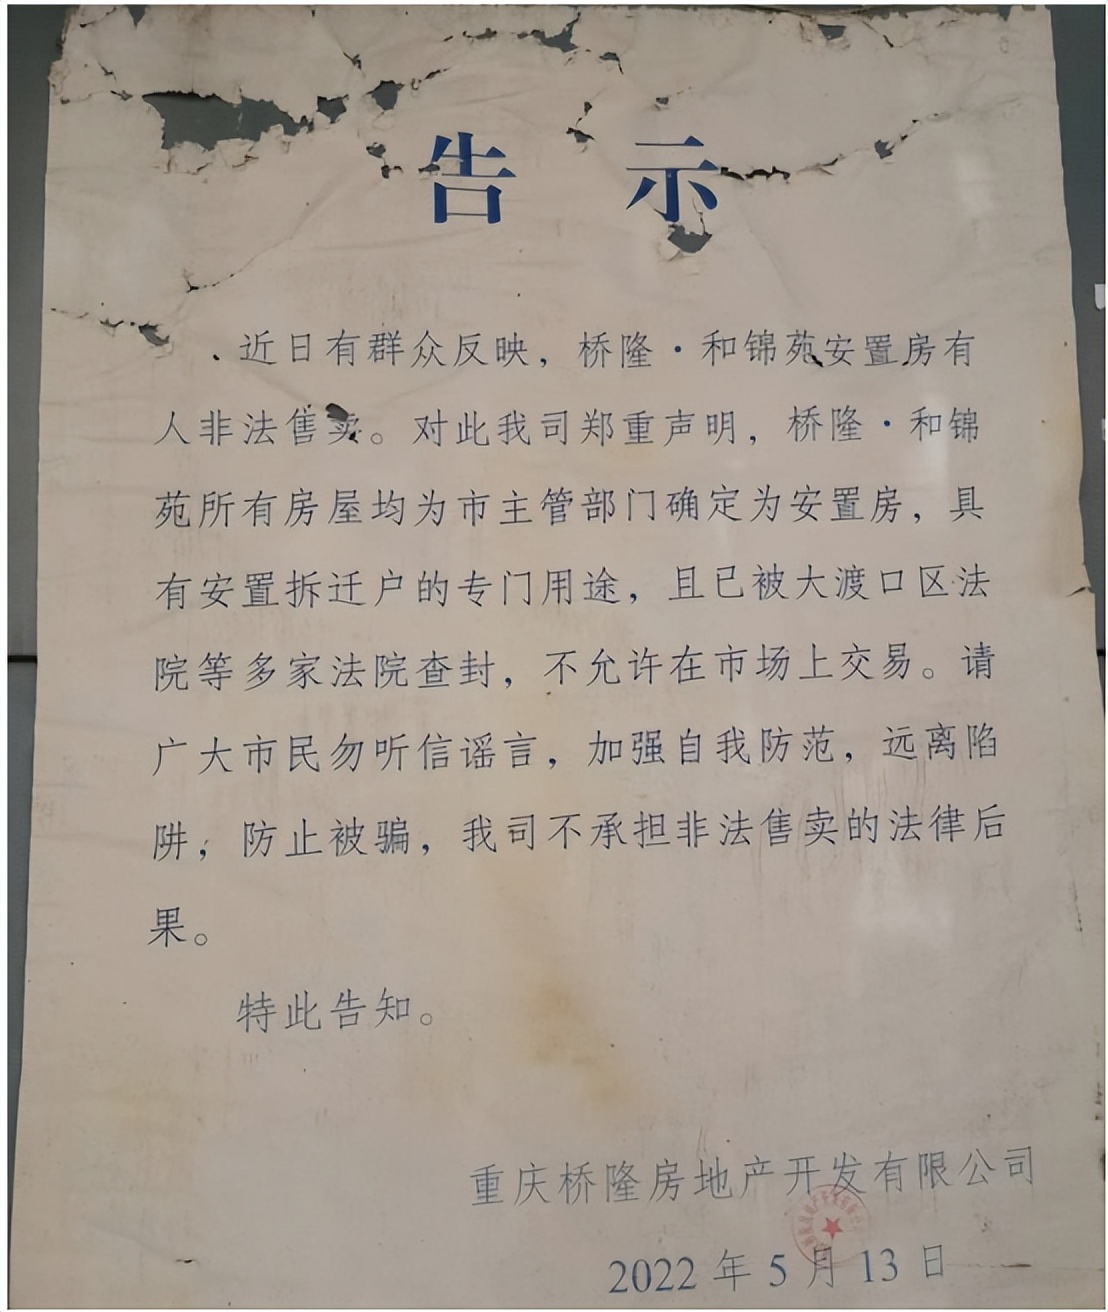 告 示
近日有群众反映，桥隆·和锦苑安置房有
人非法售卖。对此我司郑重声明，桥隆·和锦
苑所有房屋均为市主管部门确定为安置房，具
有安置拆迁户的专门用途，且已被大渡口区法
院等多家法院查封，不允许在市场上交易。请
广大市民勿听信谣言，加强自我防范，远离陷
阱，防止被骗，我司不承担非法售卖的法律后
果。
特此告知。
重庆桥隆房地产开发有限公司
2022年5月13日